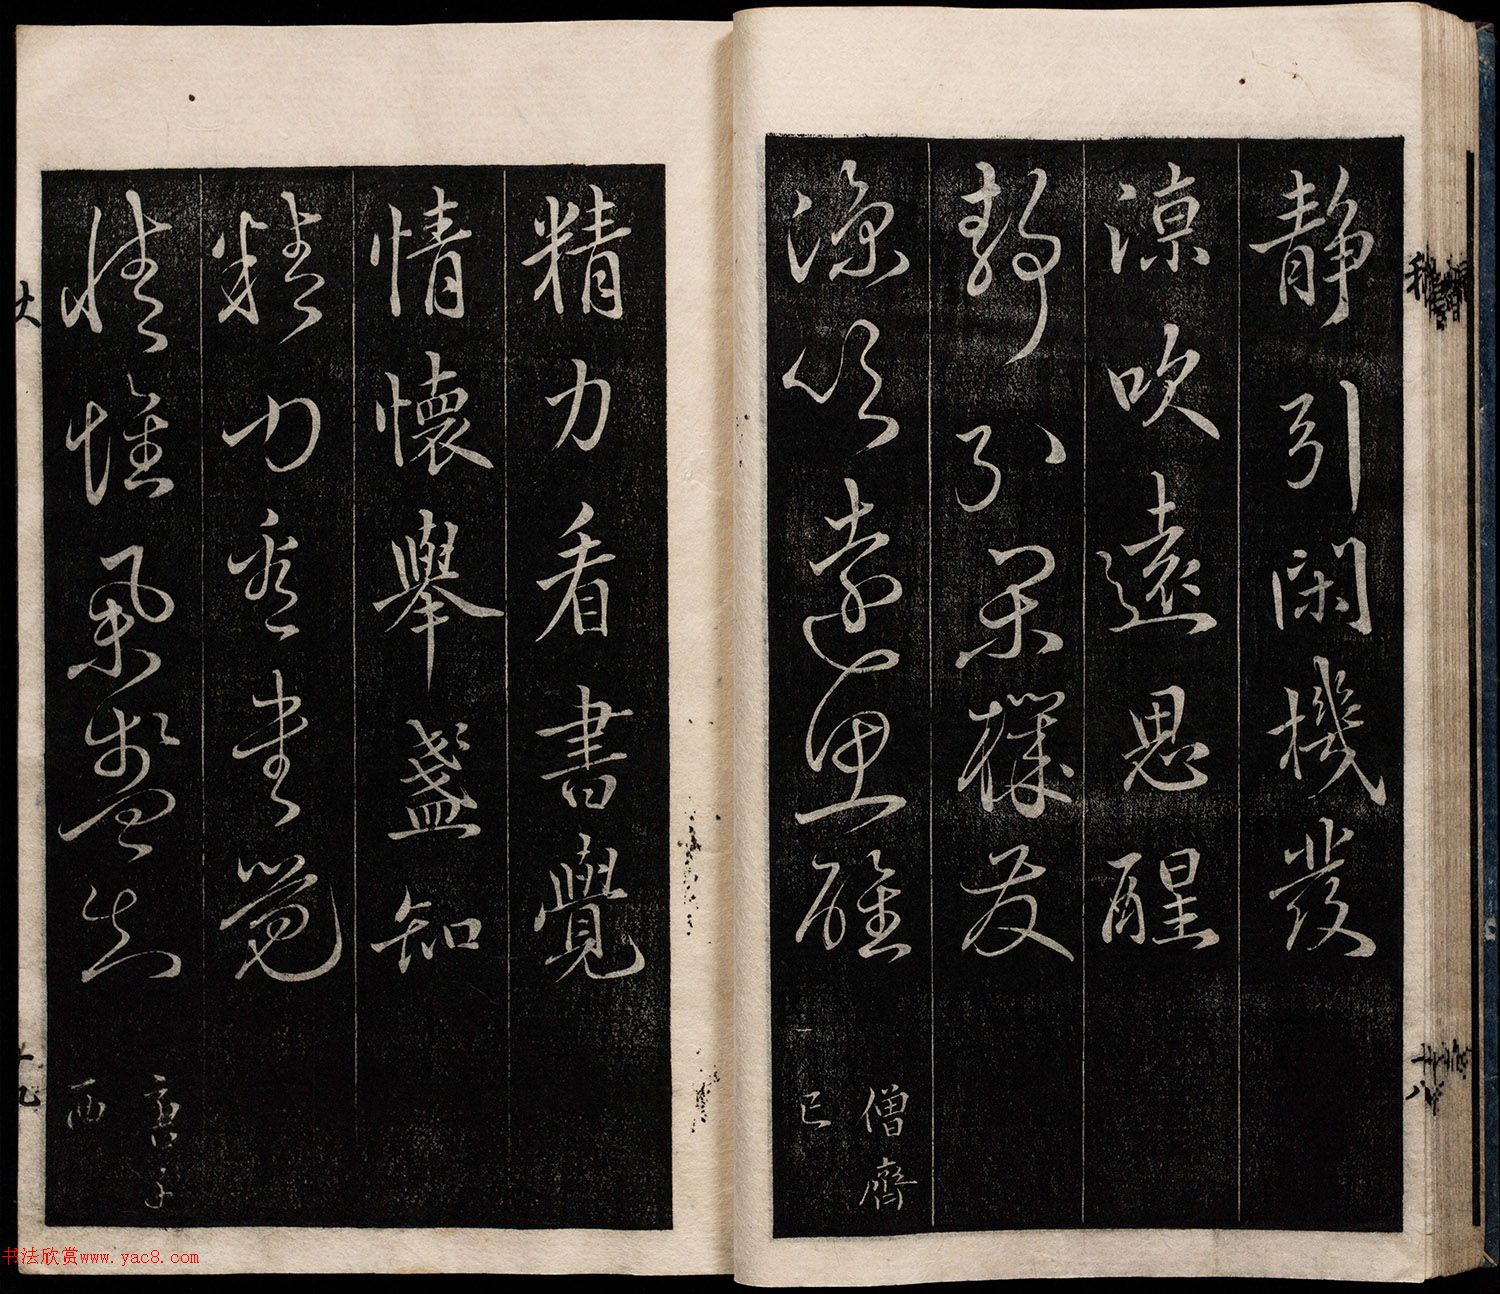 静引閑機發
涼吹遠思醒
静引閑機發
涼吹遠思醒
僧齊
已
精力看書覺
情懷舉盞知
精力看書覺
情懷舉盞知
唐子
西
十八
十九
书法欣赏www.yac8.com